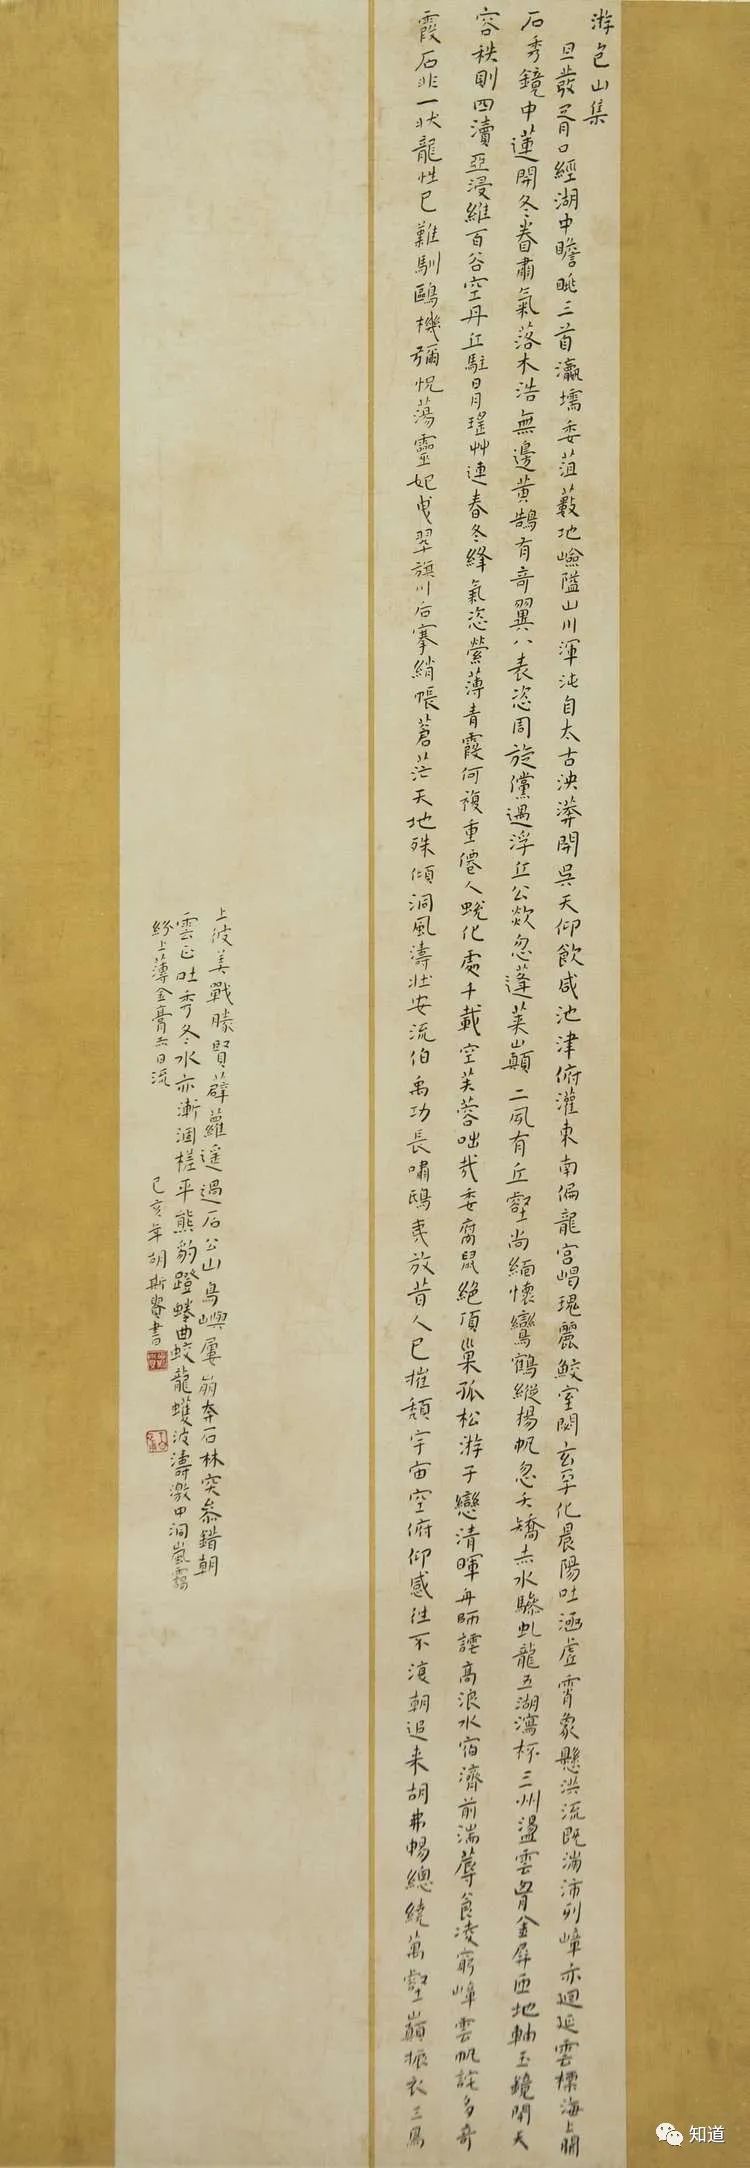 游包山集
旦發胥口經湖中瞻眺三首瀛壖委菹藪地嶮隘山川渾沌自太古泱漭開吳天仰飲咸池津俯灌東南偏龍宮嵑瑰麗鮫室閟玄玄化晨陽吐涵虛霄象懸洪流既湍沛列嶂亦迴延雲標海上開
石秀鏡中蓮開冬眷肅氣落木浩無邊黃鵠有奇翼八表恣周旋儻遇浮丘公欻忽蓬萊巔二夙有丘壑尚緬懷鸞鶴縱揚帆忽夭矯赤水驂虬龍五湖瀉杯三州盪雲胥金屏匝地軸玉鏡開天
容秩則四瀆亞浸維百谷空丹丘駐日月瑤艸連春冬絳氣恣縈薄青霞何複重僊人蛻化處千載空芙蓉咄哉委腐鼠絕頂巢孤松游子戀清暉舟師諲高浪水宿濟前湍蓐食淩窮嶂雲帆詫多奇
霞石非一狀龍性已難馴鷗機彌怳蕩靈妃曳翠旗川后搴綃帳蒼茫天地殊傾洞風濤壯安流伯禹功長嘯鴟夷放昔人已摧頹宇宙空俯仰感往不復朝追來胡弗暢總繞萬壑巔振衣三鳥
上彼美戰勝賢薜蘿遙遇石公山鳥嶼屢翁奔石林突叅錯朝
雲正吐秀冬水亦漸涸槎平熊豹蹬蜷曲蛟龍蠖波濤激中洞嵐靄
紛上薄金膏示日流
己亥年胡斯賚書
知道